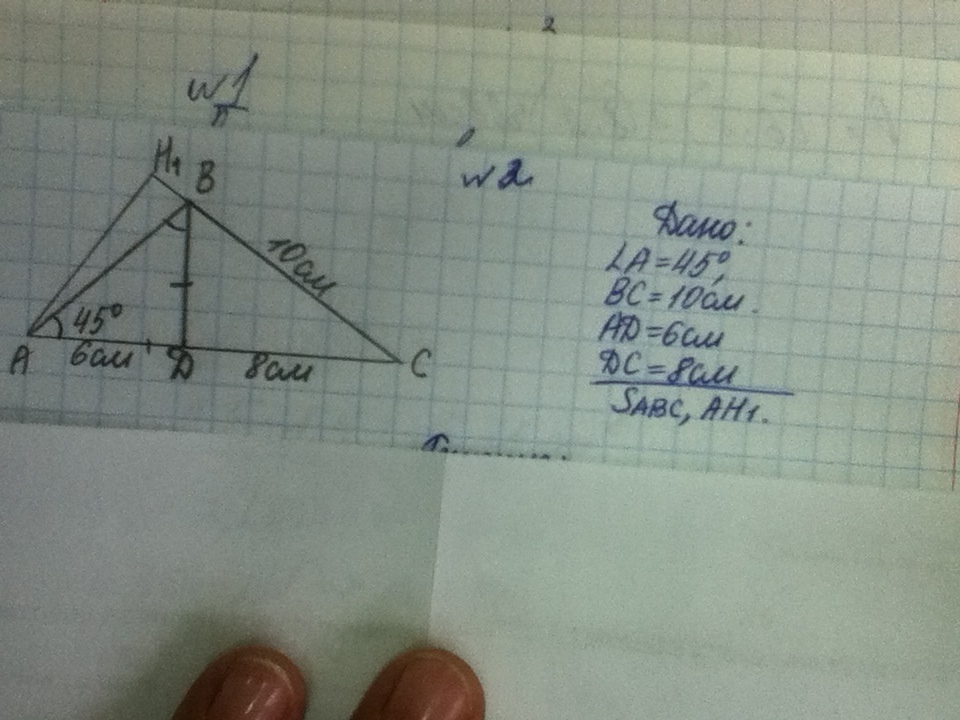 2
№1
H₁
B
10см
45°
A
6см
D
8см
C
№2
Дано:
∠A=45°,
BC=10см.
AD=6см
DC=8см
SABC, AH₁.